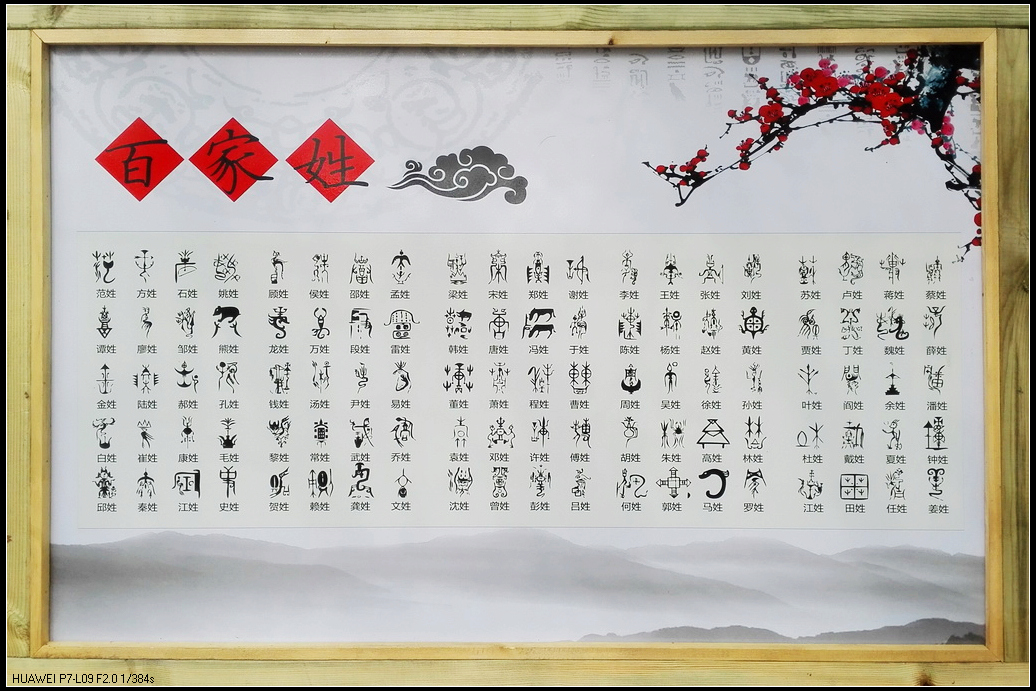 百家姓
范姓 方姓 石姓 姚姓 顾姓 侯姓 邵姓 孟姓 梁姓 宋姓 郑姓 谢姓 李姓 王姓 张姓 刘姓 苏姓 卢姓 蒋姓 蔡姓
谭姓 廖姓 邹姓 熊姓 龙姓 万姓 段姓 雷姓 韩姓 唐姓 冯姓 于姓 陈姓 杨姓 赵姓 黄姓 贾姓 丁姓 魏姓 薛姓
金姓 陆姓 郝姓 孔姓 钱姓 汤姓 尹姓 易姓 董姓 萧姓 程姓 曹姓 周姓 吴姓 徐姓 孙姓 叶姓 阎姓 余姓 潘姓
白姓 崔姓 康姓 毛姓 黎姓 常姓 武姓 乔姓 袁姓 邓姓 许姓 傅姓 胡姓 朱姓 高姓 林姓 杜姓 戴姓 夏姓 钟姓
邱姓 秦姓 江姓 史姓 贺姓 赖姓 龚姓 文姓 沈姓 曾姓 彭姓 吕姓 何姓 郭姓 马姓 罗姓 江姓 田姓 任姓 姜姓
HUAWEI P7-L09 F2.0 1/384s